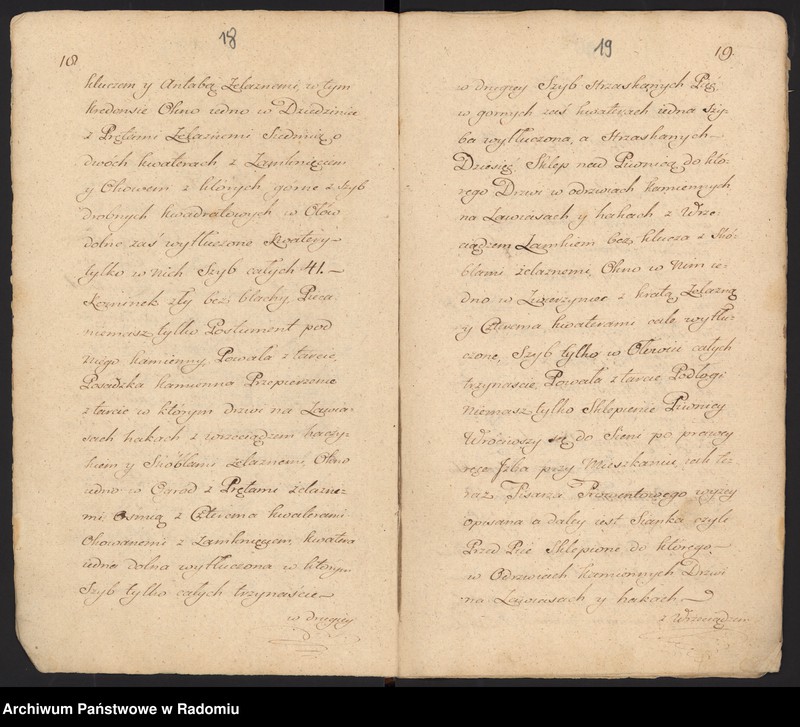 18
18
kluczem y Antabą Zelaznemi, w tym
kredensie Okno iedno w Dziedziniec
z Prętami Zelaznemi Siedmią o
dwóch kwaterach z Zamknięciem
y Okowem z których gorne z szyb
drobnych kwadratowych w Ołow
dolne zaś wytłuczone kwatery
tylko w nich Szyb całych 41.—
Kominek zły bez blachy, Pieca
niemasz tylko Postument pod
niego kamienny, Powała z tarcic,
Posadzka kamienna Przepierzenie
z tarcic w którym drzwi na Zawia-
sach hakach z wrzeciądzem haczy-
kiem y Skóblami żelaznemi, Okno
iedno w Ogrod z Prętami żelazne-
mi Osmią z Czterema kwaterami
Okowanemi z Zamknięciem, kwatera
iedna dolna wytłuczona w którym
Szyb tylko całych trzynaście—
w drugiey
19
19
w drugiey Szyb strzaskanych Pięć
w gornych zaś kwaterach iedna szy-
ba wytłuczona, a Strzaskanych—
Dziesięć, Sklep nad Piwnicą do któ-
rego Drzwi w odrzwiach kamiennych
na Zawiasach y hakach z Wrze-
ciądzem Zamkiem bez klucza z Skó-
blami żelaznemi, Okno w Nim ie-
dno w Zwierzyniec z kratą Zelazną
y Czterema kwaterami cale wytłu-
czone, Szyb tylko w Ołowiu całych
trzynaście, Powała z tarcic Podłogi
Niemasz tylko Sklepienie Piwnicy
Wróciwszy się do Sieni po prawey
ręce Izba przy Mieszkaniu iest te-
raz Pisarza Prowentowego wyzey
opisana a daley iest Sionka czyli
Przed Pie Sklepione do którego—
w Odrzwiach kamiennych Drzwi
na Zawiasach y hakach—
z Wrzeciądzem
Archiwum Państwowe w Radomiu